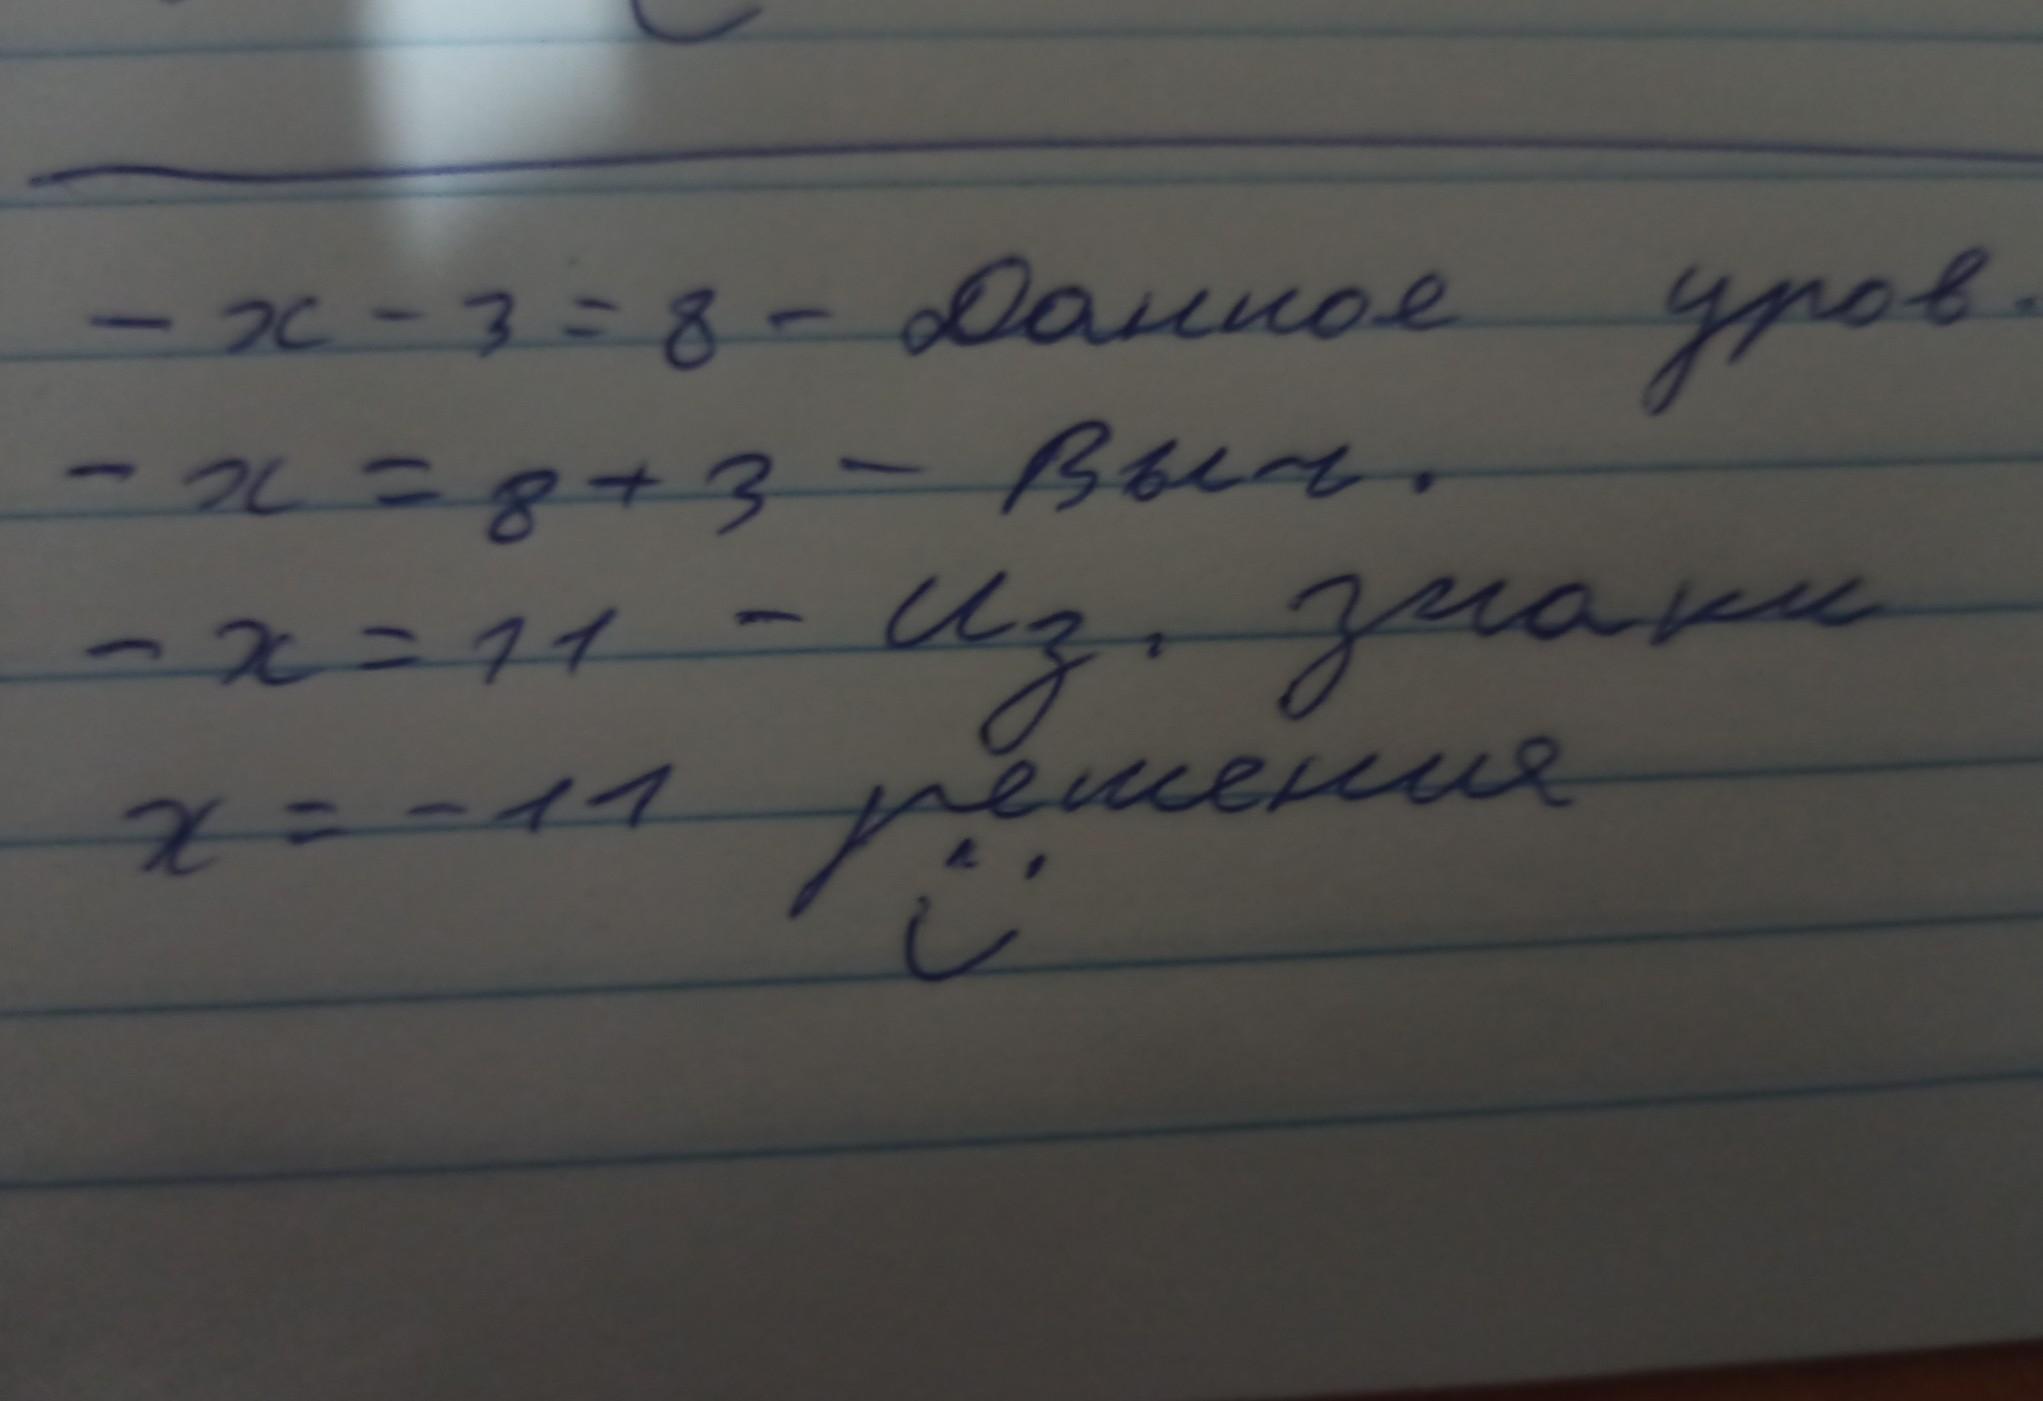 - x - 3 = 8 - Данное уров.
- x = 8 + 3 - Выч.
- x = 11 - Из. знаки
x = - 11 решения